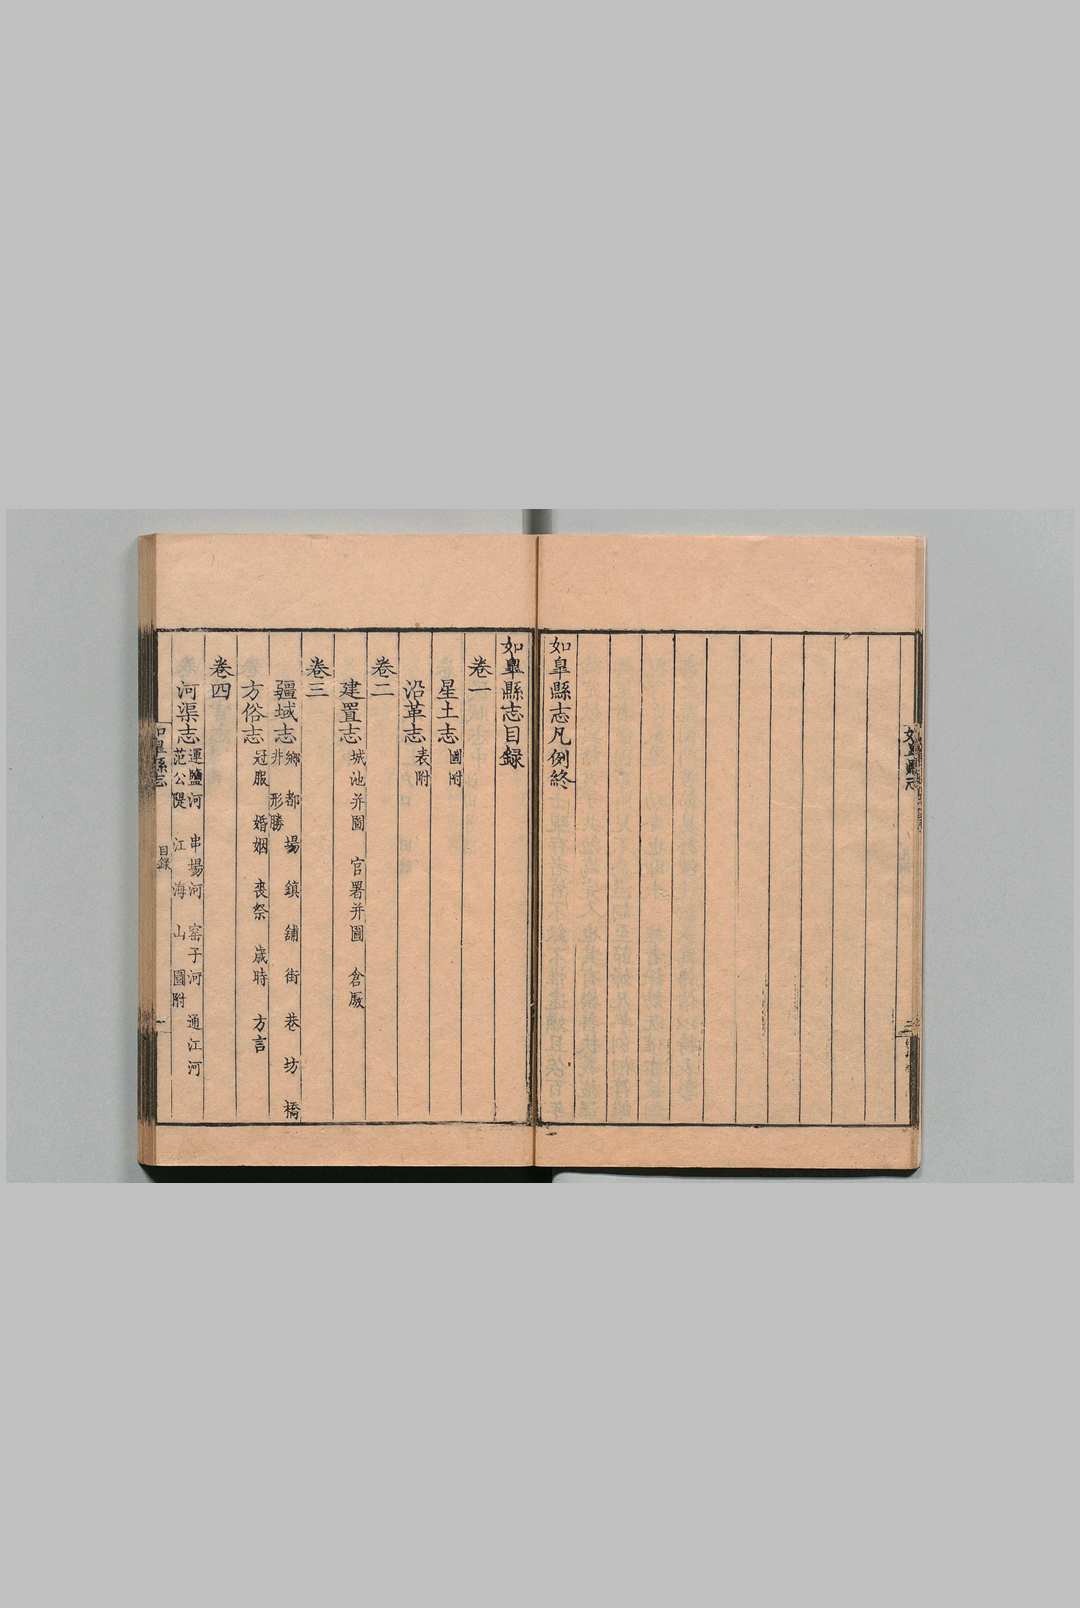 如皐縣志凡例終
如皐縣志目録
卷一
星土志 圖附
沿革志 表附
卷二
建置志 城池并圖 官署并圖 倉厫
卷三
疆域志 鄉 都 場 鎮 舖 街 巷 坊 橋
井 形勝
方俗志 冠服 婚姻 喪祭 歳時 方言
卷四
河渠志 運鹽河 串場河 窑子河 通江河
范公隄 江 海 山 圖附
如皐縣志
目録
一